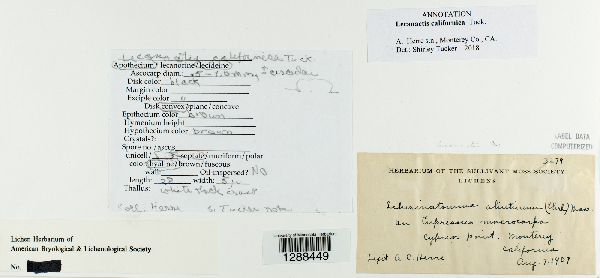 Lecanactis californica Tuck
Apothecium / lecanorine/lecideine
Ascocarp diam.: .5-1.0mm
Disk color black
Margin color
Exciple color "
Disk convex/plane/concave
Epithecium color brown
Hymenium height
Hypothecium color brown
Crystal-?:
Spore no./ascus
unicell/ 3 -septate/muriform/polar
color: hyaline/brown/fuscous
wall: Oil inspersed? NO
length: width:
Thallus: white
Coll. Herre S. Tucker note
ANNOTATION
Lecanactis californica Tuck.
A. Herre s.n., Monterey Co., CA.
Det.: Shirley Tucker 2018
LABEL DATA
COMPUTERIZED
HERBARIUM OF THE SULLIVANT MOSS SOCIETY
LICHENS
Schismatomma
on Cupressus macrocarpa
Cypress Point. Monterey
California
Legit A. C. Herre Aug. 7,
Lichen Herbarium of
American Bryological & Lichenological Society
No.
1288449